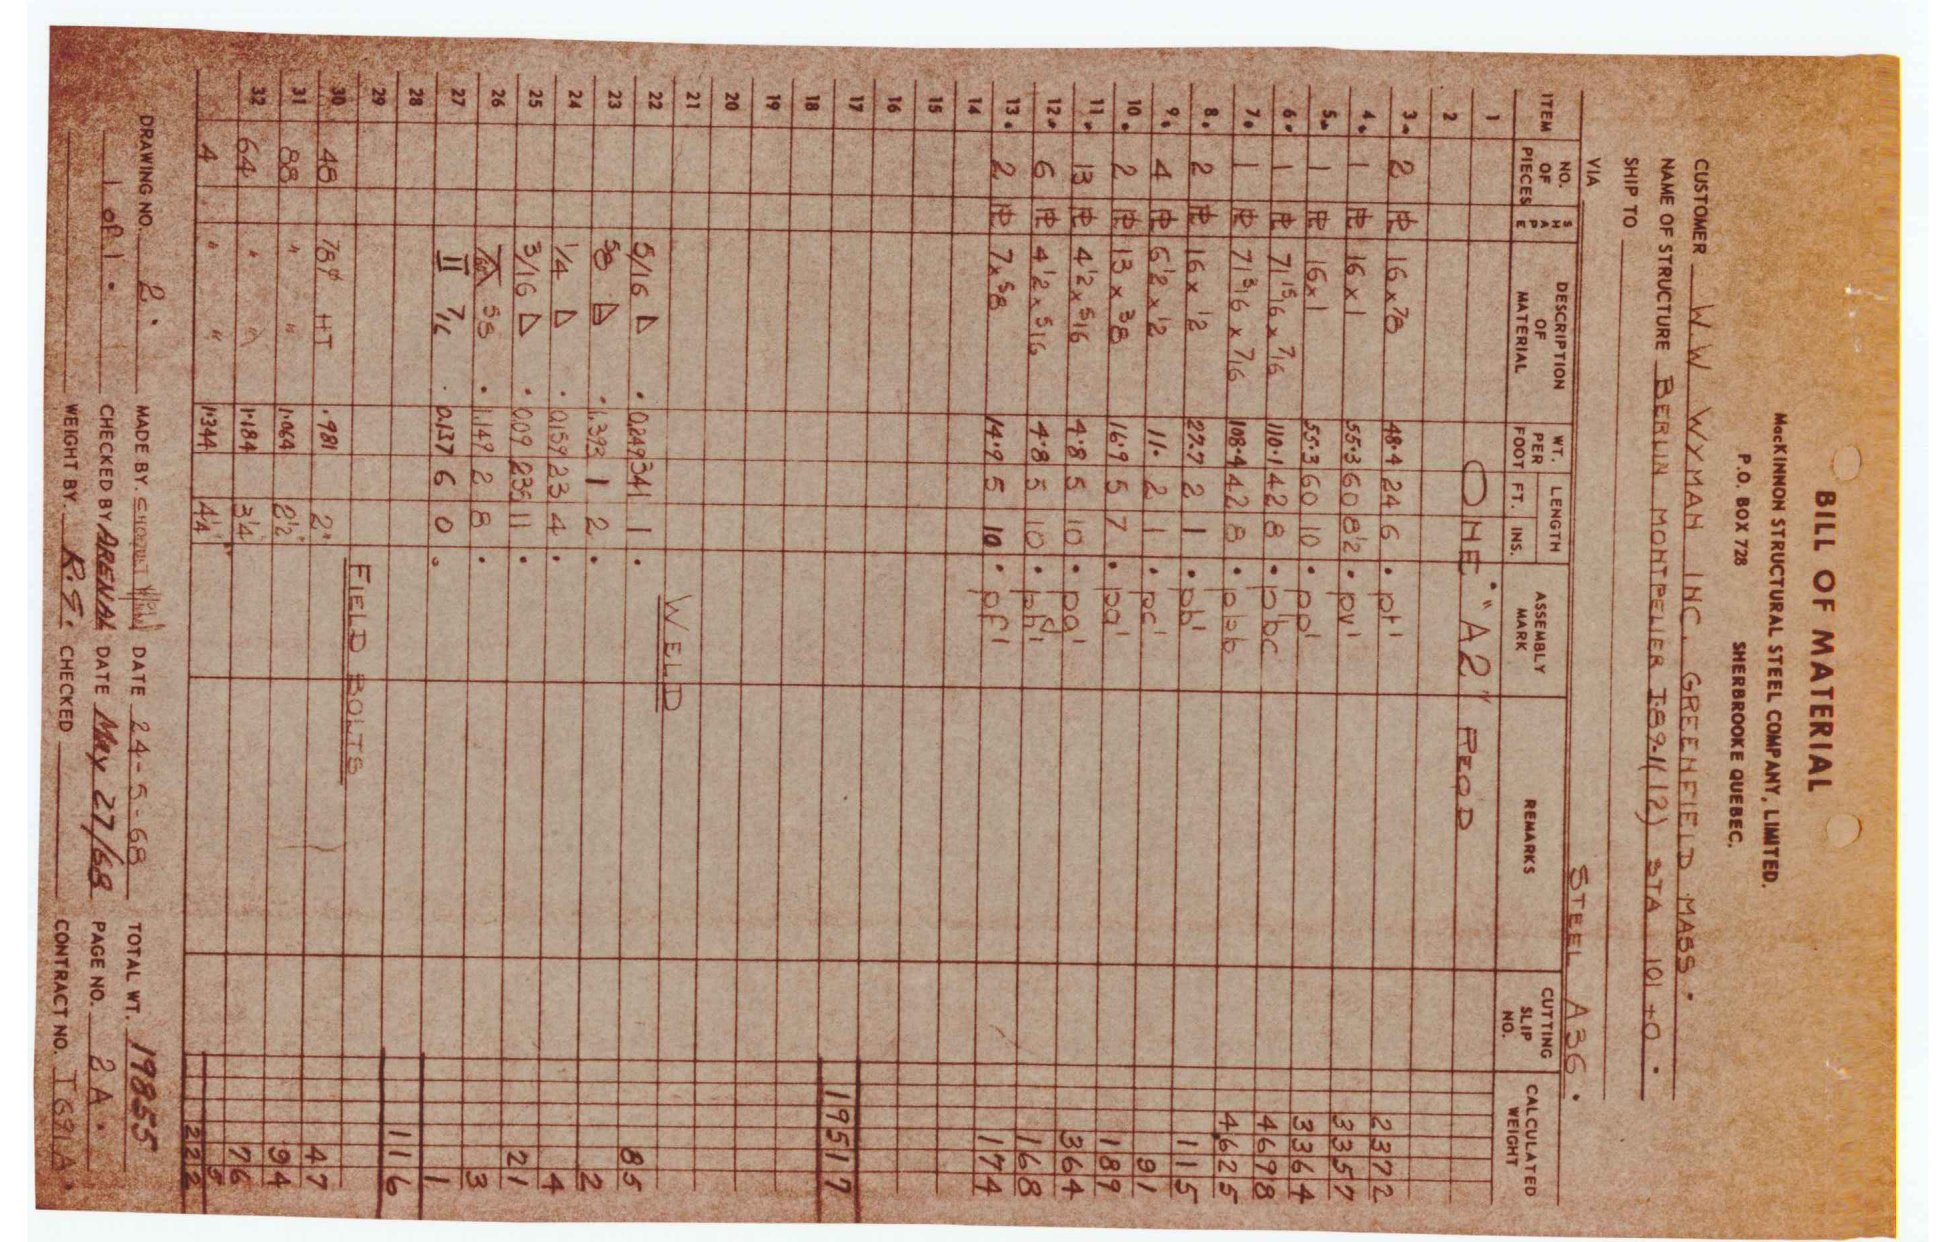 BILL OF MATERIAL
MacKINNON STRUCTURAL STEEL COMPANY, LIMITED.
P.O. BOX 728 SHERBROOKE QUEBEC.
CUSTOMER W W WYMAN INC. GREENFIELD MASS.
NAME OF STRUCTURE BERLIN MONTPELIER I-89-1(12) STA 101+0.
SHIP TO
VIA STEEL A36.
ITEM NO. OF PIECES SHAPE DESCRIPTION OF MATERIAL WT. PER FOOT LENGTH FT. INS. ASSEMBLY MARK REMARKS CUTTING SLIP NO. CALCULATED WEIGHT
1 ONE "A2" REQ'D
2
3. 2 PL 16 x 7/8 48.4 24 6 pt' 2372
4. 1 PL 16 x 1 55.3 60 8 1/2 pv' 3357
5. 1 PL 16 x 1 55.3 60 10 pp' 3364
6. 1 PL 71 15/16 x 7/16 110.1 42 8 pbc 4698
7. 1 PL 71 3/16 x 7/16 108.4 42 8 pbb 4625
8. 2 PL 16 x 1/2 27.7 2 1 pb' 115
9. 4 PL 6 1/2 x 1/2 11. 2 1 pc' 91
10. 2 PL 13 x 3/8 16.9 5 7 pa' 189
11. 13 PL 4 1/2 x 5/16 4.8 5 10 pg' 364
12. 6 PL 4 1/2 x 5/16 4.8 5 10 168
13. 2 PL 7 x 5/8 14.9 5 10 pf' 174
14
15
16
17 19517
18
19
20
21 WELD
22 5/16 0.249 341 1 85
23 5/8 1.393 1 2 2
24 1/4 0.159 23 4 4
25 3/16 0.09 235 11 21
26 5/8 1.149 2 8 3
27 II 7/16 0.137 6 0 1
28 116
29 FIELD BOLTS
30 48 7/8φ HT .981 2" 47
31 88 " " 1.064 2 1/2" 94
32 64 " " 1.184 3 1/4" 76
4 " " 1.344 4 1/4" 5
222
DRAWING NO. 2. MADE BY. DATE 24-5-68 TOTAL WT. 19855
1 of 1. CHECKED BY ARENAL DATE May 27/68 PAGE NO. 2 A.
WEIGHT BY. CHECKED CONTRACT NO. T691A.